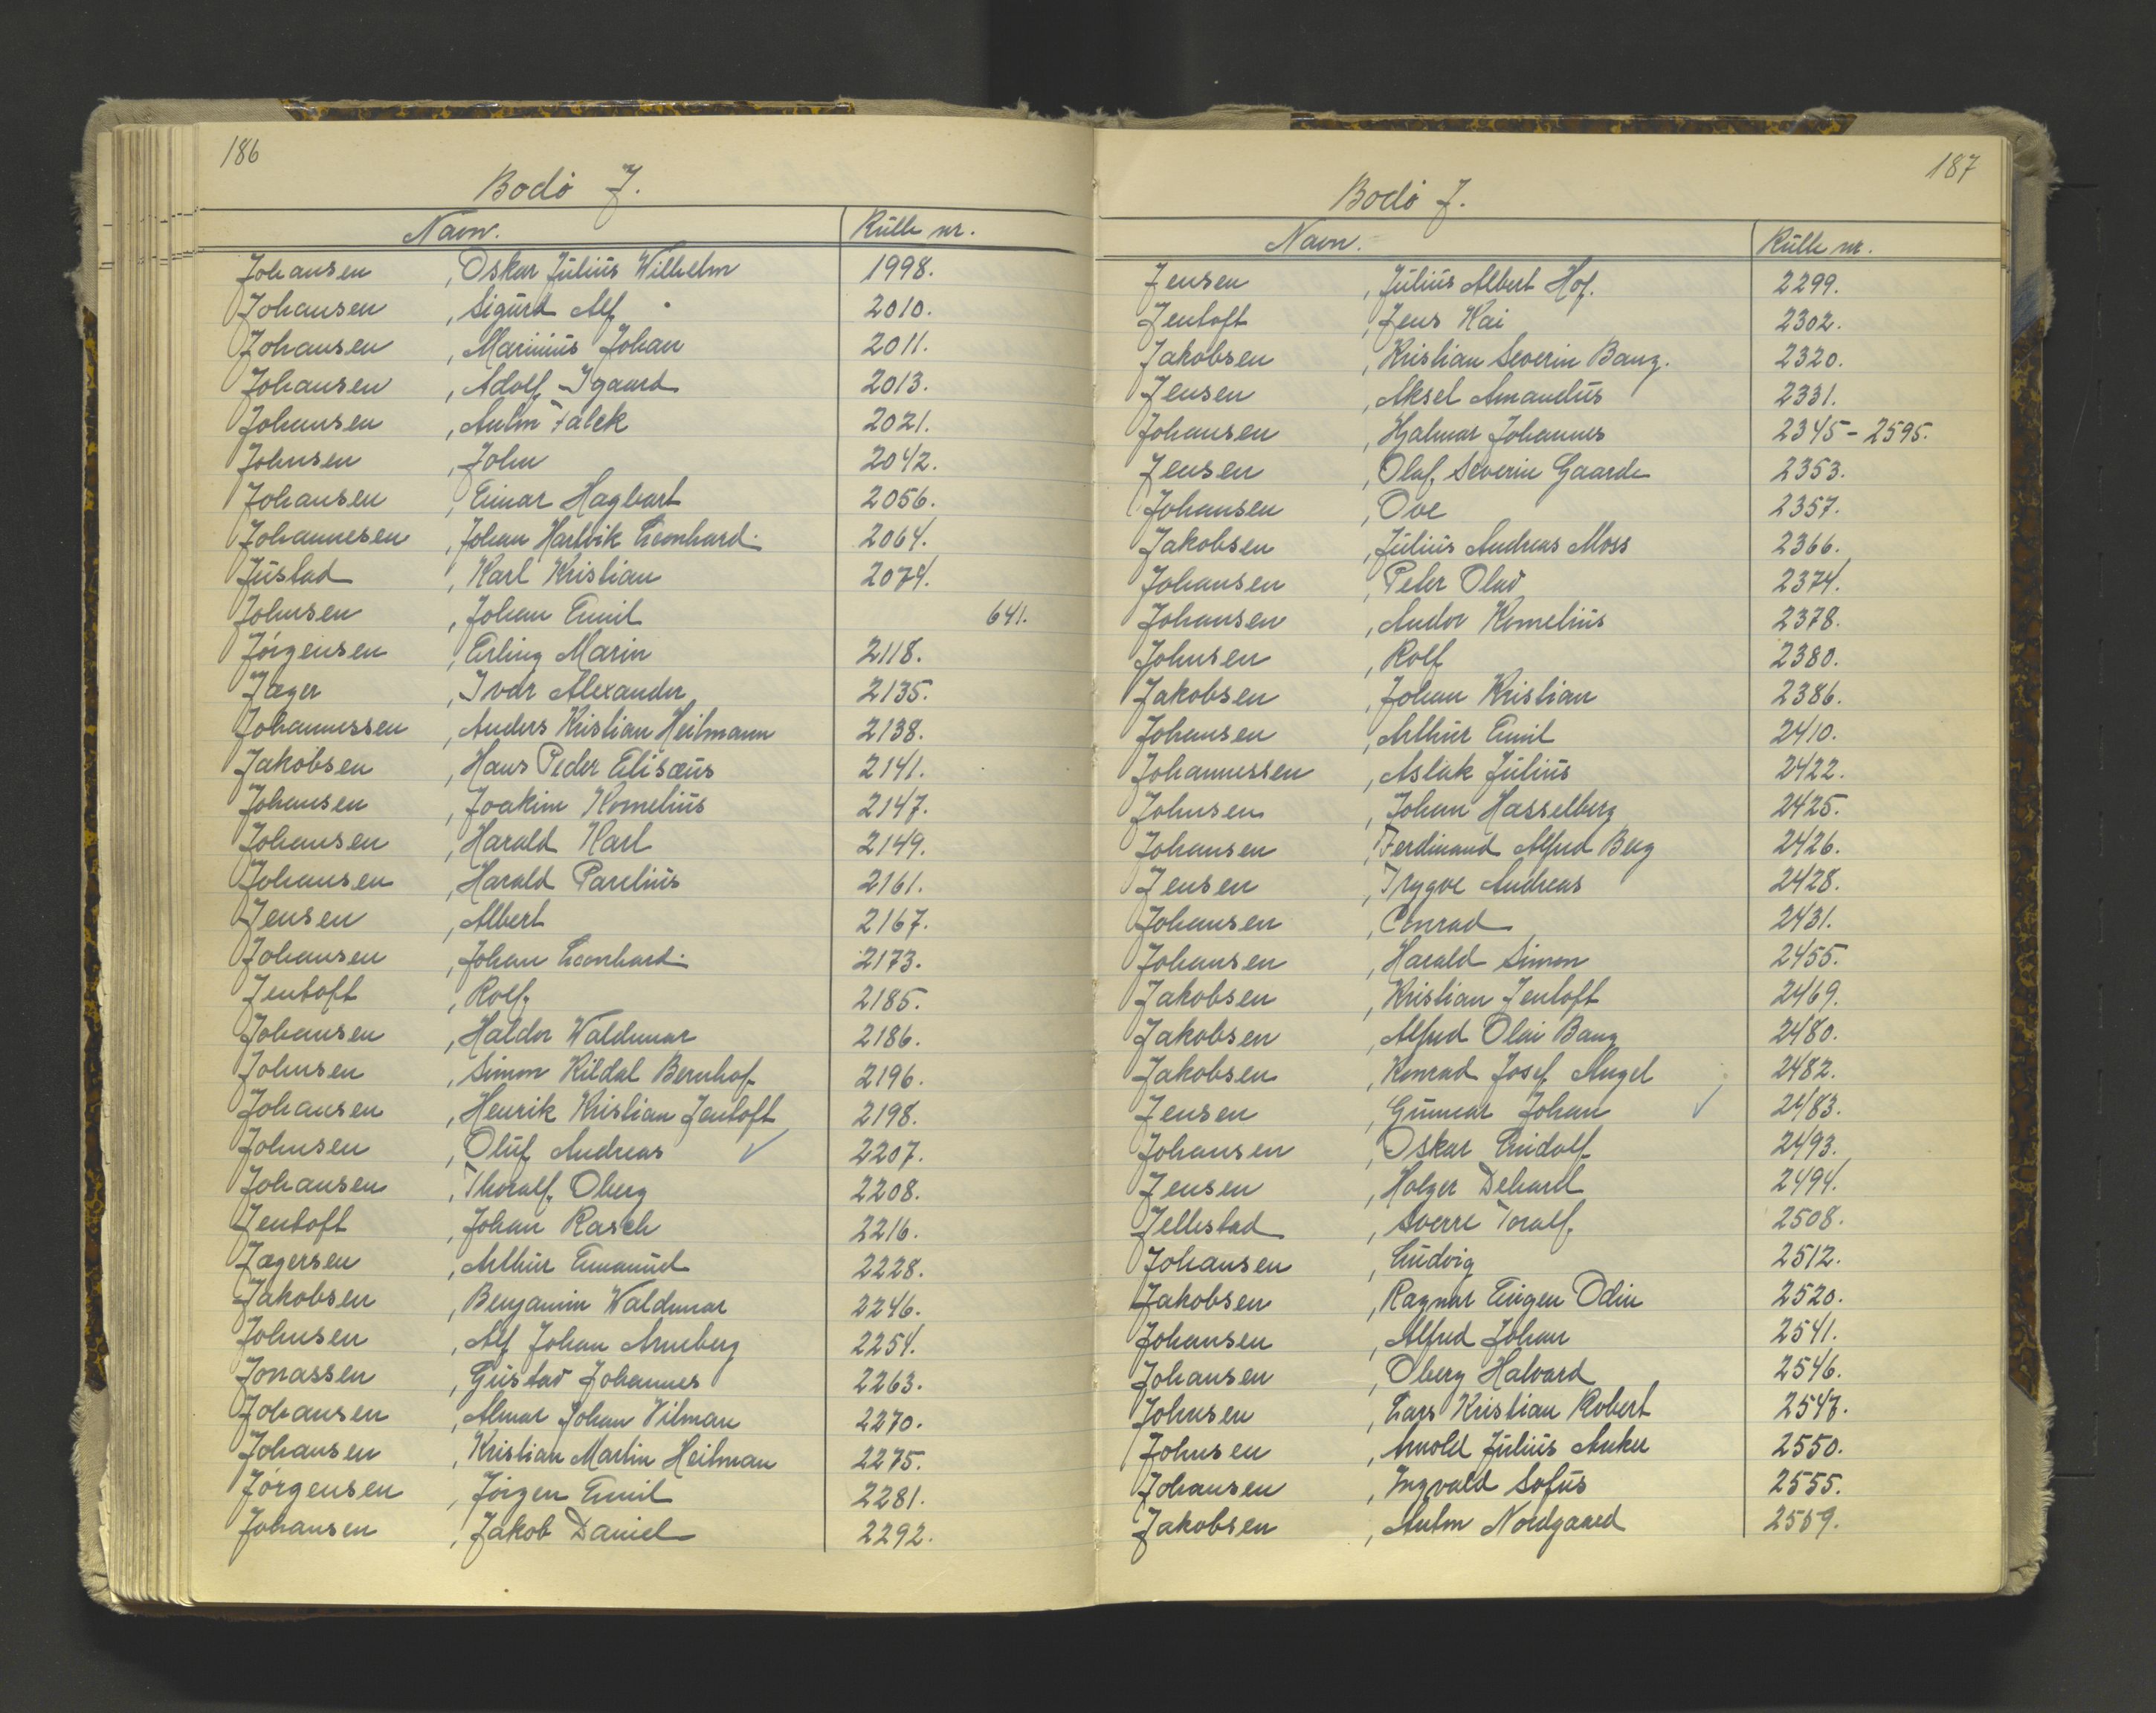 186
Bodø J.
Navn. Rulle nr.
Johansen, Oskar Julius Wilhelm 1998.
Johansen, Sigurd Alf 2010.
Johansen, Marinius Johan 2011.
Johansen, Adolf Ygaard 2013.
Johansen, Anton Falck 2021.
Johnsen, John 2042.
Johansen, Einar Hagbart 2056.
Johannesen, Johan Hartvik Leonhard. 2064.
Justad, Karl Kristian 2074.
Johnsen, Johan Emil 641.
Jørgensen, Erling Marin 2118.
Jæger, Ivar Alexander 2135.
Johannessen, Anders Kristian Heilmann 2138.
Jakobsen, Hans Peder Elisæus 2141.
Johansen, Joakim Kornelius 2147.
Johansen, Harald Karl 2149.
Johansen, Harald Parelius 2161.
Jensen, Albert 2167.
Johansen, Johan Leonhard. 2173.
Jentoft, Rolf 2185.
Johansen, Haldor Waldemar 2186.
Johnsen, Simon Kildal Bernhof 2196.
Johansen, Henrik Kristian Jentoft 2198.
Johnsen, Oluf Andreas ✓ 2207.
Johansen, Thoralf Oberg 2208.
Jentoft, Johan Rasch 2216.
Jægersen, Arthur Emanuel 2228.
Jakobsen, Benjamin Waldemar 2246.
Johnsen, Alf Johan Arneberg 2254.
Jonassen, Gustav Johannes 2263.
Johansen, Almar Johan Vilman 2270.
Johansen, Kristian Martin Heilman 2275.
Jørgensen, Jørgen Emil 2281.
Johansen, Jakob Daniel 2292.
187
Bodø J.
Navn. Rulle nr.
Jensen, Julius Albert Hof. 2299.
Jentoft, Jens Kai 2302.
Jakobsen, Kristian Severin Bang. 2320.
Jensen, Aksel Amandus 2331.
Johansen, Hjalmar Johannes 2345 - 2595.
Jensen, Olaf Severin Gaarde 2353.
Johansen, Ove 2357.
Jakobsen, Julius Andreas Moss 2366.
Johansen, Peter Olav 2374.
Johansen, Andor Kornelius 2378.
Johnsen, Rolf 2380.
Jakobsen, Johan Kristian 2386.
Johansen, Arthur Emil 2410.
Johannessen, Aslak Julius 2422.
Johnsen, Johan Hasselberg 2425.
Johansen, Ferdinand Alfred Berg 2426.
Jensen, Trygve Andreas 2428.
Johansen, Conrad 2431.
Johansen, Harald Simon 2455.
Jakobsen, Kristian Jentoft 2469.
Jakobsen, Alfred Olai Bang 2480.
Jakobsen, Konrad Josef Angel 2482.
Jensen, Gunnar Johan ✓ 2483.
Johansen, Oskar Lindolf 2493.
Jensen, Holger Dehard 2494.
Jellestad, Sverre Toralf 2508.
Johansen, Ludvig 2512.
Jakobsen, Ragnar Eugen Odin 2520.
Johansen, Alfred Johan 2541.
Johansen, Oberg Halvard 2546.
Johnsen, Lars Kristian Robert 2547.
Johnsen, Arnold Julius Anker 2550.
Johansen, Ingvald Sofus 2555.
Jakobsen, Anton Nordgaard 2559.